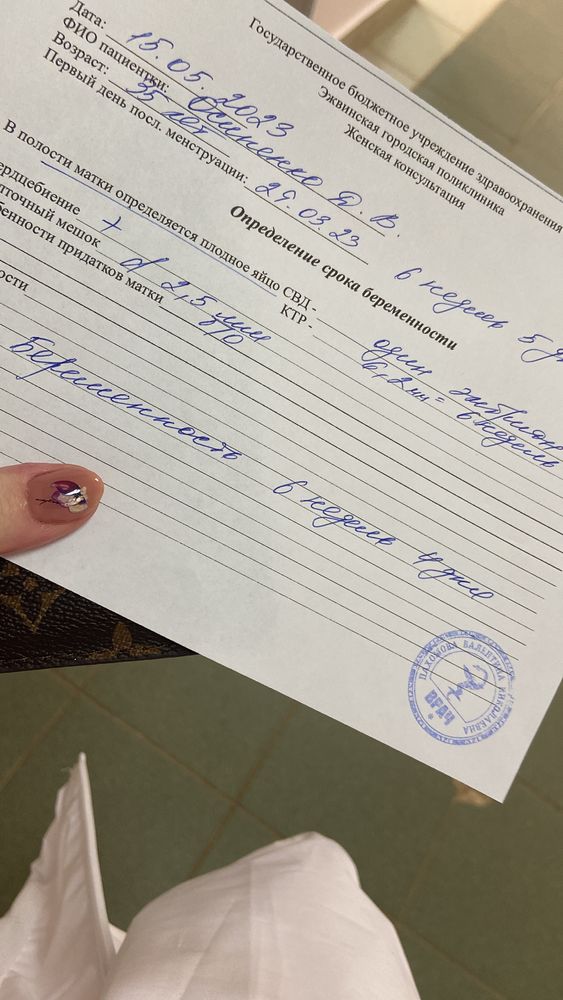 Государственное бюджетное учреждение здравоохранения
Эжвинская городская поликлиника
Женская консультация
Определение срока беременности
Дата: 15.05.2023
ФИО пациентки: Осипенко Я. В.
Возраст: 35 лет
Первый день посл. менструации: 29.03.23 6 недель 5
В полости матки определяется плодное яйцо СВД - один эмбрион
КТР - 6,2 мм = 6 недель
+
d 2,5 мм
придатков матки б/о
Беременность 6 недель 4 дня
ПАХОМОВА ВАЛЕНТИНА НИКОЛАЕВНА
ВРАЧ